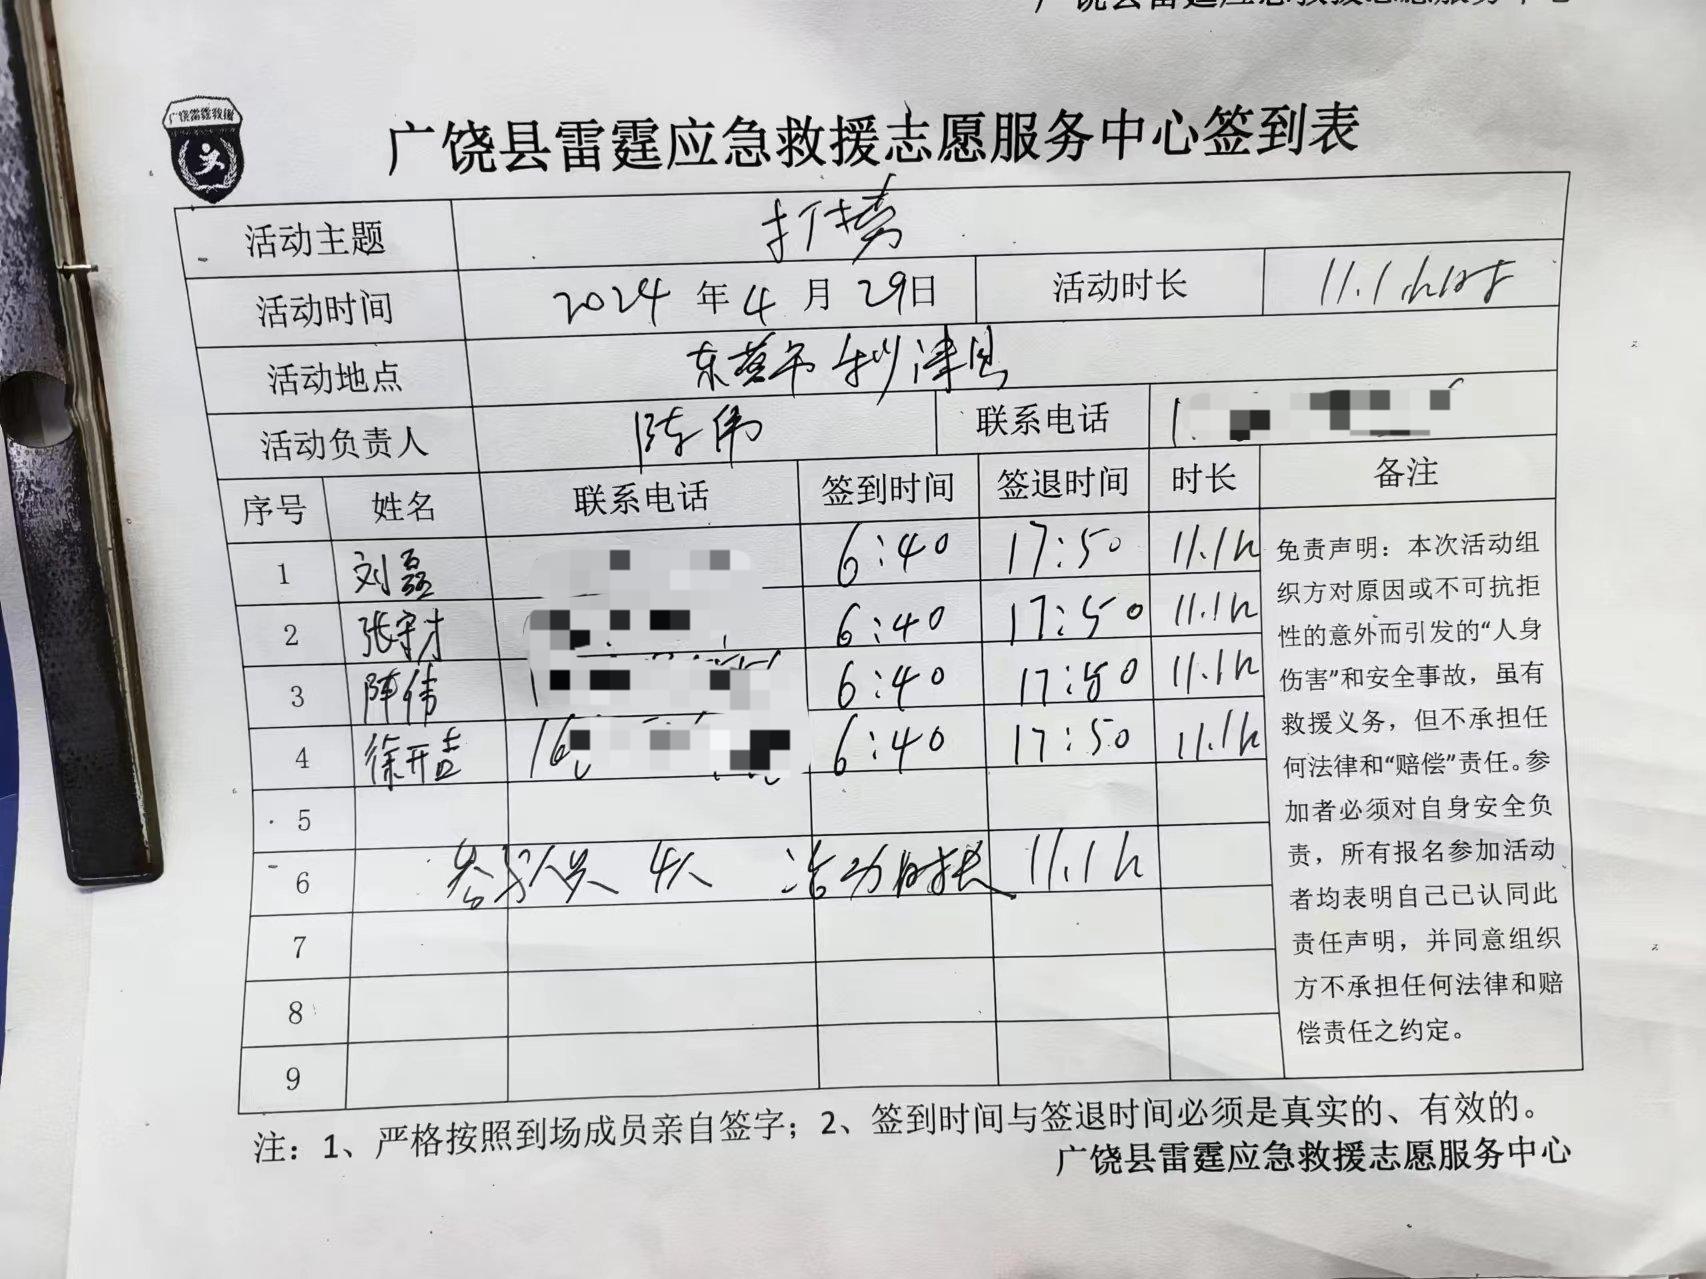 广饶县雷霆应急救援志愿服务中心
广饶雷霆救援
广饶县雷霆应急救援志愿服务中心签到表
活动主题 打捞
活动时间 2024年4月29日 活动时长 11.1小时
活动地点 东营市利津县
活动负责人 陈伟 联系电话 1
序号 姓名 联系电话 签到时间 签退时间 时长 备注
1 刘磊 6:40 17:50 11.1h
2 张守才 6:40 17:50 11.1h
3 陈伟 1 6:40 17:50 11.1h
4 徐开吉 16 6:40 17:50 11.1h
5
6 参与人员 4人 活动时长 11.1h
7
8
9
免责声明：本次活动组
织方对原因或不可抗拒
性的意外而引发的“人身
伤害”和安全事故，虽有
救援义务，但不承担任
何法律和“赔偿”责任。参
加者必须对自身安全负
责，所有报名参加活动
者均表明自己已认同此
责任声明，并同意组织
方不承担任何法律和赔
偿责任之约定。
注：1、严格按照到场成员亲自签字；2、签到时间与签退时间必须是真实的、有效的。
广饶县雷霆应急救援志愿服务中心